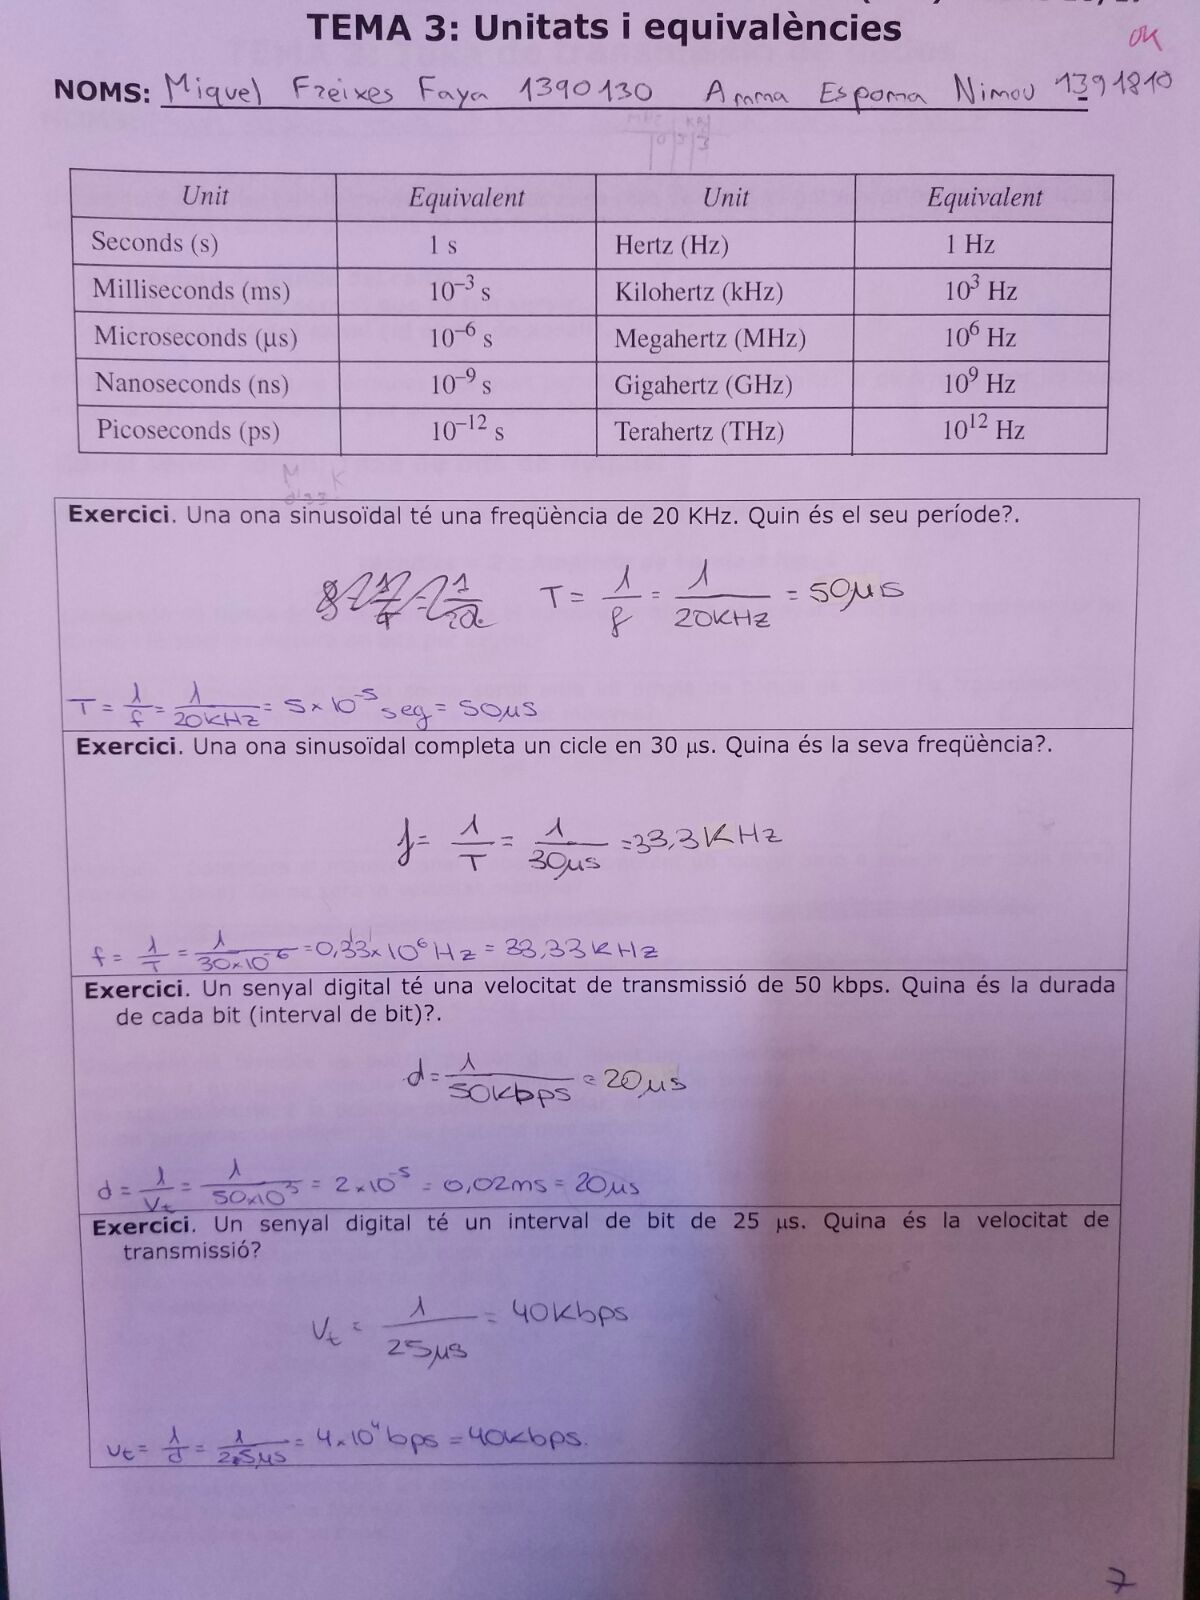 TEMA 3: Unitats i equivalències
OK
NOMS: Miquel Freixes Faya 1390130 Amma Espoma Nimou 1391810
Unit Equivalent Unit Equivalent
Seconds (s) 1 s Hertz (Hz) 1 Hz
Milliseconds (ms) 10⁻³ s Kilohertz (kHz) 10³ Hz
Microseconds (μs) 10⁻⁶ s Megahertz (MHz) 10⁶ Hz
Nanoseconds (ns) 10⁻⁹ s Gigahertz (GHz) 10⁹ Hz
Picoseconds (ps) 10⁻¹² s Terahertz (THz) 10¹² Hz
M K
Exercici. Una ona sinusoïdal té una freqüència de 20 KHz. Quin és el seu període?.
T = 1/f = 1/20KHz = 50μs
T = 1/f = 1/20KHz = 5×10⁻⁵ seg = 50μs
Exercici. Una ona sinusoïdal completa un cicle en 30 μs. Quina és la seva freqüència?.
f = 1/T = 1/30μs = 33,3KHz
f = 1/T = 1/30×10⁻⁶ = 0,33×10⁶Hz = 33,33KHz
Exercici. Un senyal digital té una velocitat de transmissió de 50 kbps. Quina és la durada
de cada bit (interval de bit)?.
d = 1/50Kbps = 20μs
d = 1/Vt = 1/50×10³ = 2×10⁻⁵ = 0,02ms = 20μs
Exercici. Un senyal digital té un interval de bit de 25 μs. Quina és la velocitat de
transmissió?
Vt = 1/25μs = 40Kbps
Vt = 1/d = 1/25μs = 4×10⁴bps = 40Kbps.
7